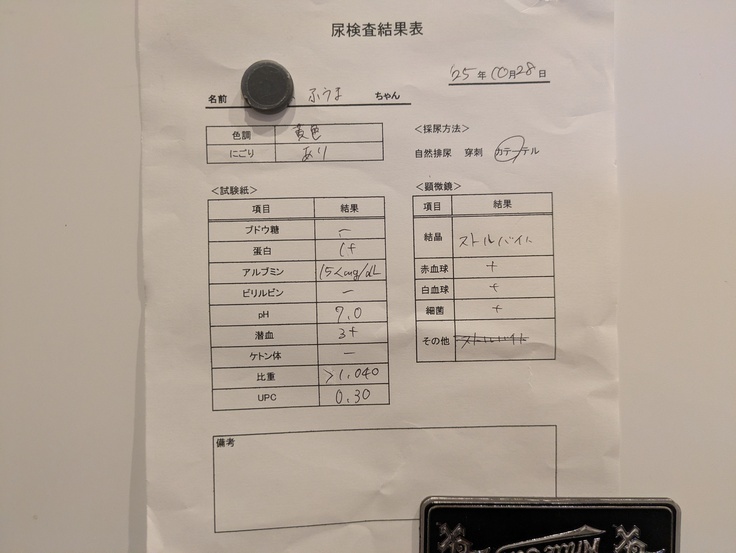 尿検査結果表
'25 年 10月 28 日
名前 ふうま ちゃん
色調 黄色
にごり あり
<採尿方法>
自然排尿 穿刺 カテーテル
<試験紙>
項目 結果
ブドウ糖 −
蛋白 1+
アルブミン 15<mg/dL
ビリルビン −
pH 7.0
潜血 3+
ケトン体 −
比重 >1.040
UPC 0.30
<顕微鏡>
項目 結果
結晶 ストルバイト
赤血球 +
白血球 +
細菌 +
その他 ストルバイト
備考